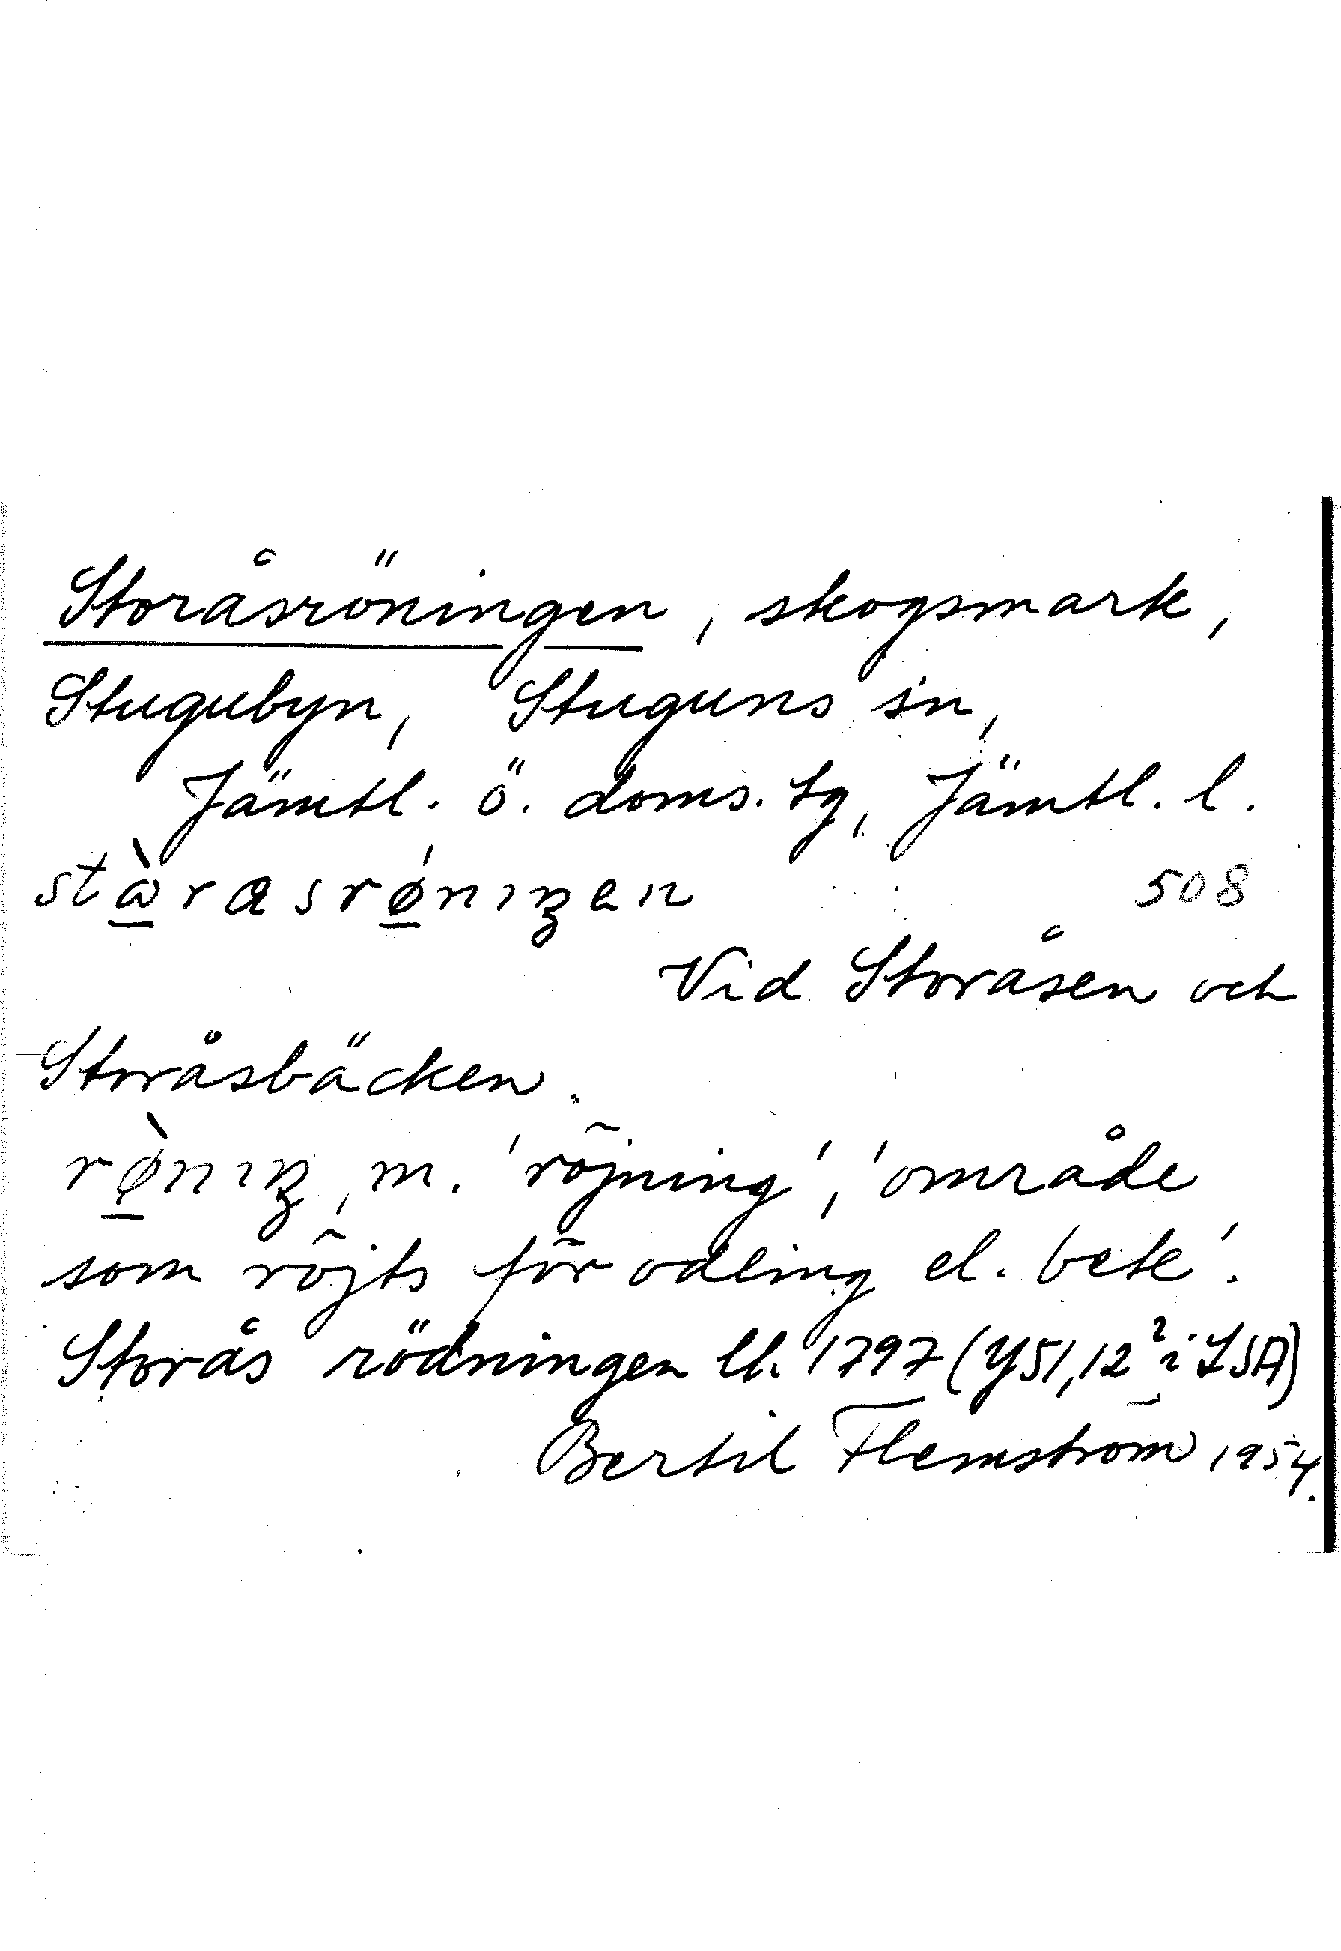 Storåsröningen, skogsmark,
Stugubyn, Stuguns sn,
Jämtl. ö. doms. tg, Jämtl. l.
stàrasrǿnıŋen 508
Vid Storåsen och
Storåsbäcken.
rø̀nıŋ, m. 'röjning', 'område
som röjts för odling el. bete'.
Storås rödningen lk. 1797 (Y51,12² i LSA)
Bertil Flemström 1954.